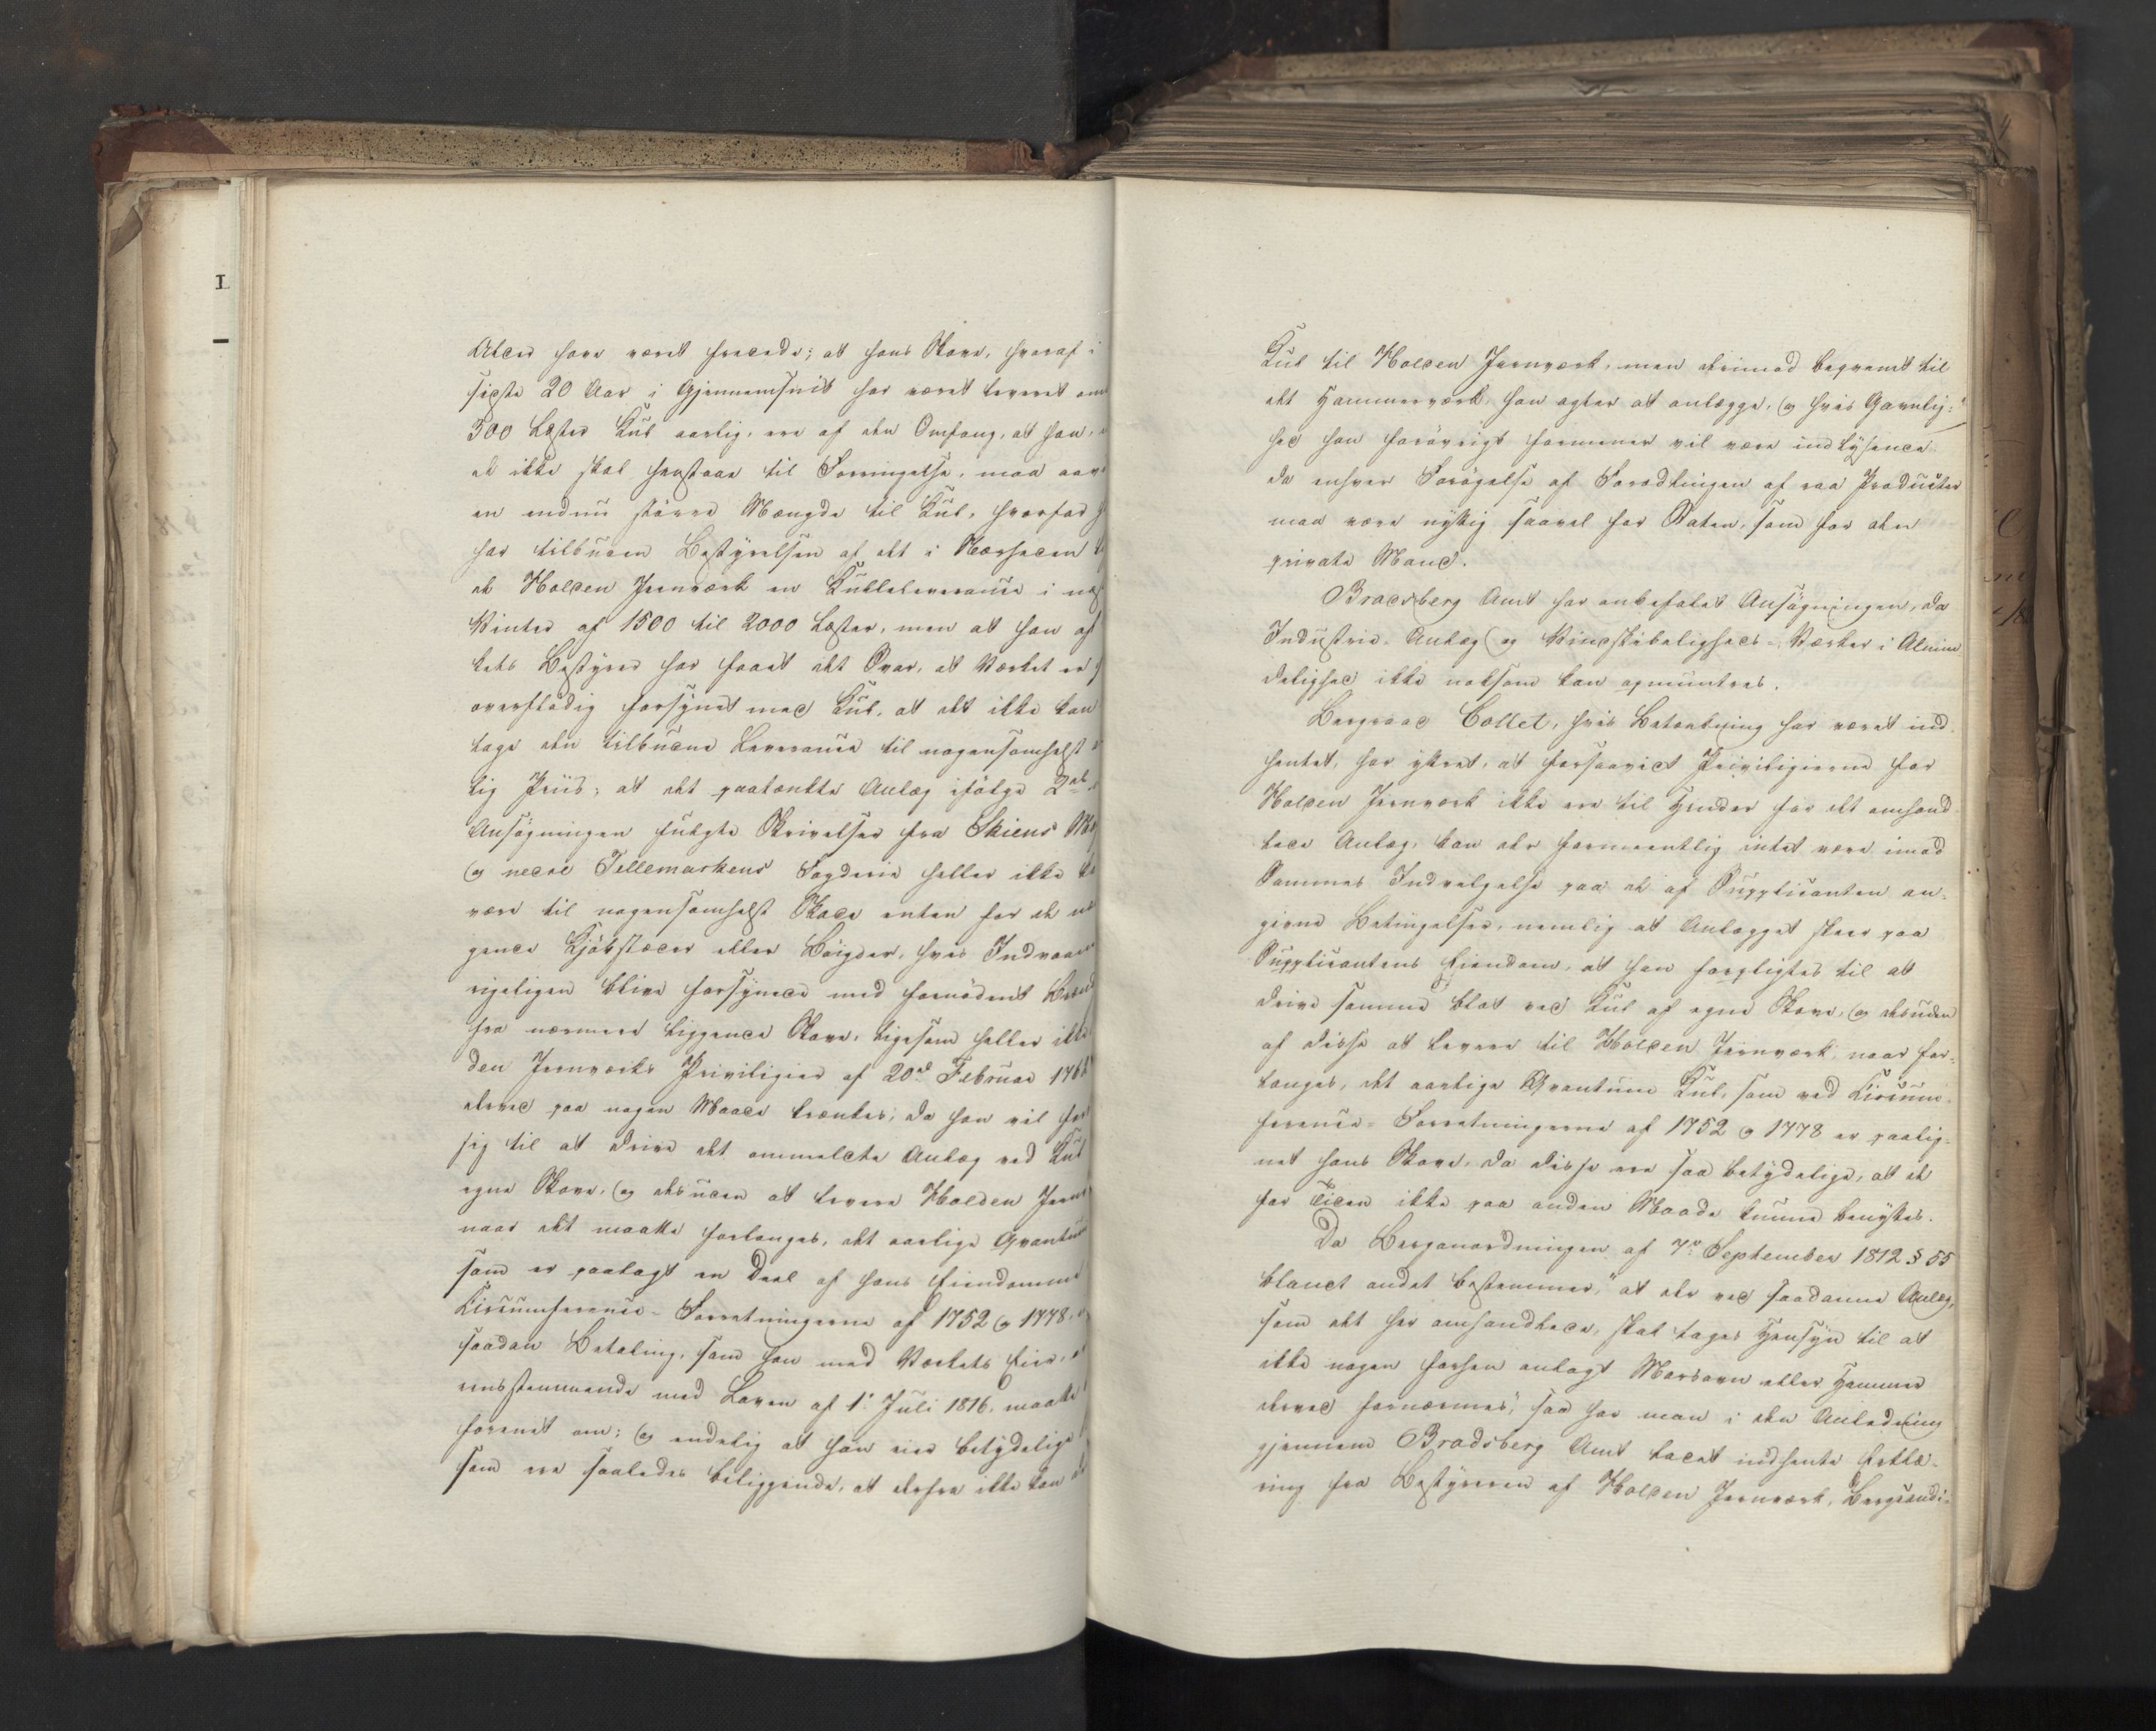 Alder have været fredede; at hans Skove, hvoraf i
sidste 20 Aar i Gjennemsnit har været leveret om
300 Læster Kul aarlig, ere af den Omfang, at han,
de ikke skal henstaae til Forringelse, maa
en endnu större Mængde til Kul, hvorfor
har tilbuden Bestyrelsen af det i Nærheden
de Holden Jernværk en Kulleverance i
Vinter af 1500 til 2000 Læster, men at han af
kets Bestyrer har faaet det Svar, at Værket er
overflödig forsynet med Kul, at det ikke kan
tage den tilbudne Leverance til nogensomhelst
lig Priis; at det paatænkte Anlæg ifölge 2de
Ansögningen fulgte Skrivelser fra Skiens
og nedre Tellemarkens Fogderie heller ikke
være til nogensomhelst Skade enten for de
gende Kjöbstæder eller Böigder, hvis Indvaa
rigeligen blive forsynede med fornödent Brænd
fra nærmere liggende Skove, ligesom heller ikke
den Jernværks Priviligier af 20de Februar 176
derved paa nogen Maade krænkes, da han vil for
sig til at drive det ommeldte Anlæg ved Kul
egne Skove, og desuden at levere Holden Jern
naar det maatte forlanges, det aarlige Qvantum
som er paalagt en Deel af hans Eiendomme
Circumference-Forretningerne af 1752 og 1778,
saadan Betaling, som han med Værkets Eier,
eensstemmende med Loven af 1ste Juli 1816, maatte
forenet om; og endelig at han eier betydelige
som ere saaledes beliggende, at derfra ikke kan
Kul til Holden Jernværk, men derimod beqvemt til
det Hammerværk han agter at anlægge, og hvis Gavnlig-
hed han forövrigt formener vil være indlysende
da enhver Forögelse af Forædlingen af raa Producter
maa være nyttig saavel for Staten, som for den
private Mand.
Bradsberg Amt har anbefalet Ansögningen, da
Industrie-Anlæg og Vindskibelighets-Værker i Almin-
delighed ikke noksom kan opmuntres.
Bergraad Collet, hvis Betænkning har været ind-
hentet, har yttret, at forsaavidt Priviligierne for
Holden Jernværk ikke ere til Hinder for det omhand-
lede Anlæg, kan der formeentlig intet være imod
Sammes Indvilgelse paa de af Supplicanten an-
givne Betingelser, nemlig at Anlægget skeer paa
Supplicantens Eiendom, at han forpligtes til at
drive samme blot ved Kul af egne Skove, og desuden
af disse at levere til Holden Jernværk, naar for-
langes, det aarlige Qvantum Kul, som ved Circum-
ference-Forretningerne af 1752 og 1778 er paalig-
net hans Skove, da disse ere saa betydelige, at de
for Tiden ikke paa anden Maade kunne benyttes.
Da Berganordningen af 7de September 1812 § 55
blandt andet bestemmer, "at der ved saadanne Anlæg,
som det her omhandlede, skal tages Hensyn til at
ikke nogen forhen anlagt Masovn eller Hammer
derved fornærmes", saa har man i den Anledning
gjennem Bradsberg Amt ladet indhente Erklæ-
ring fra Bestyreren af Holden Jernværk, Bergcandi-